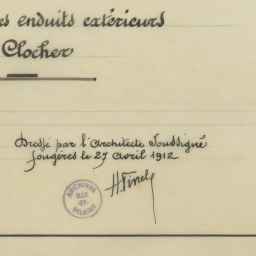 rs enduits extérieurs
Clocher
Dressé par l'Architecte Soussigné
Fougères le 27 Avril 1912
H Finel
ARCHIVES